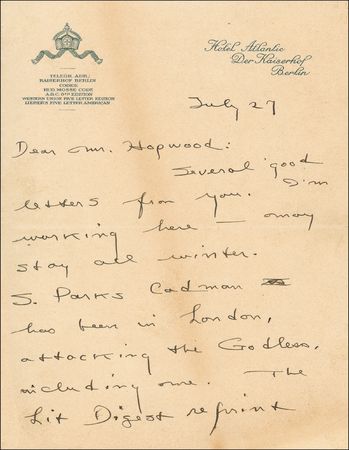 TELEGR. ADR.:
KAISERHOF BERLIN
CODES:
RUD. MOSSE CODE
A.B.C. 5TH EDITION
WESTERN UNION FIVE LETTER EDITION
LIEBER'S FIVE LETTER AMERICAN
Hotel Atlantic
Der Kaiserhof
Berlin
July 27
Dear Mr. Hopwood:
Several good
letters from you. I'm
working here — may
stay all winter.
S. Parks Cadman
has been in London,
attacking the Godless,
including me. The
Lit Digest reprint